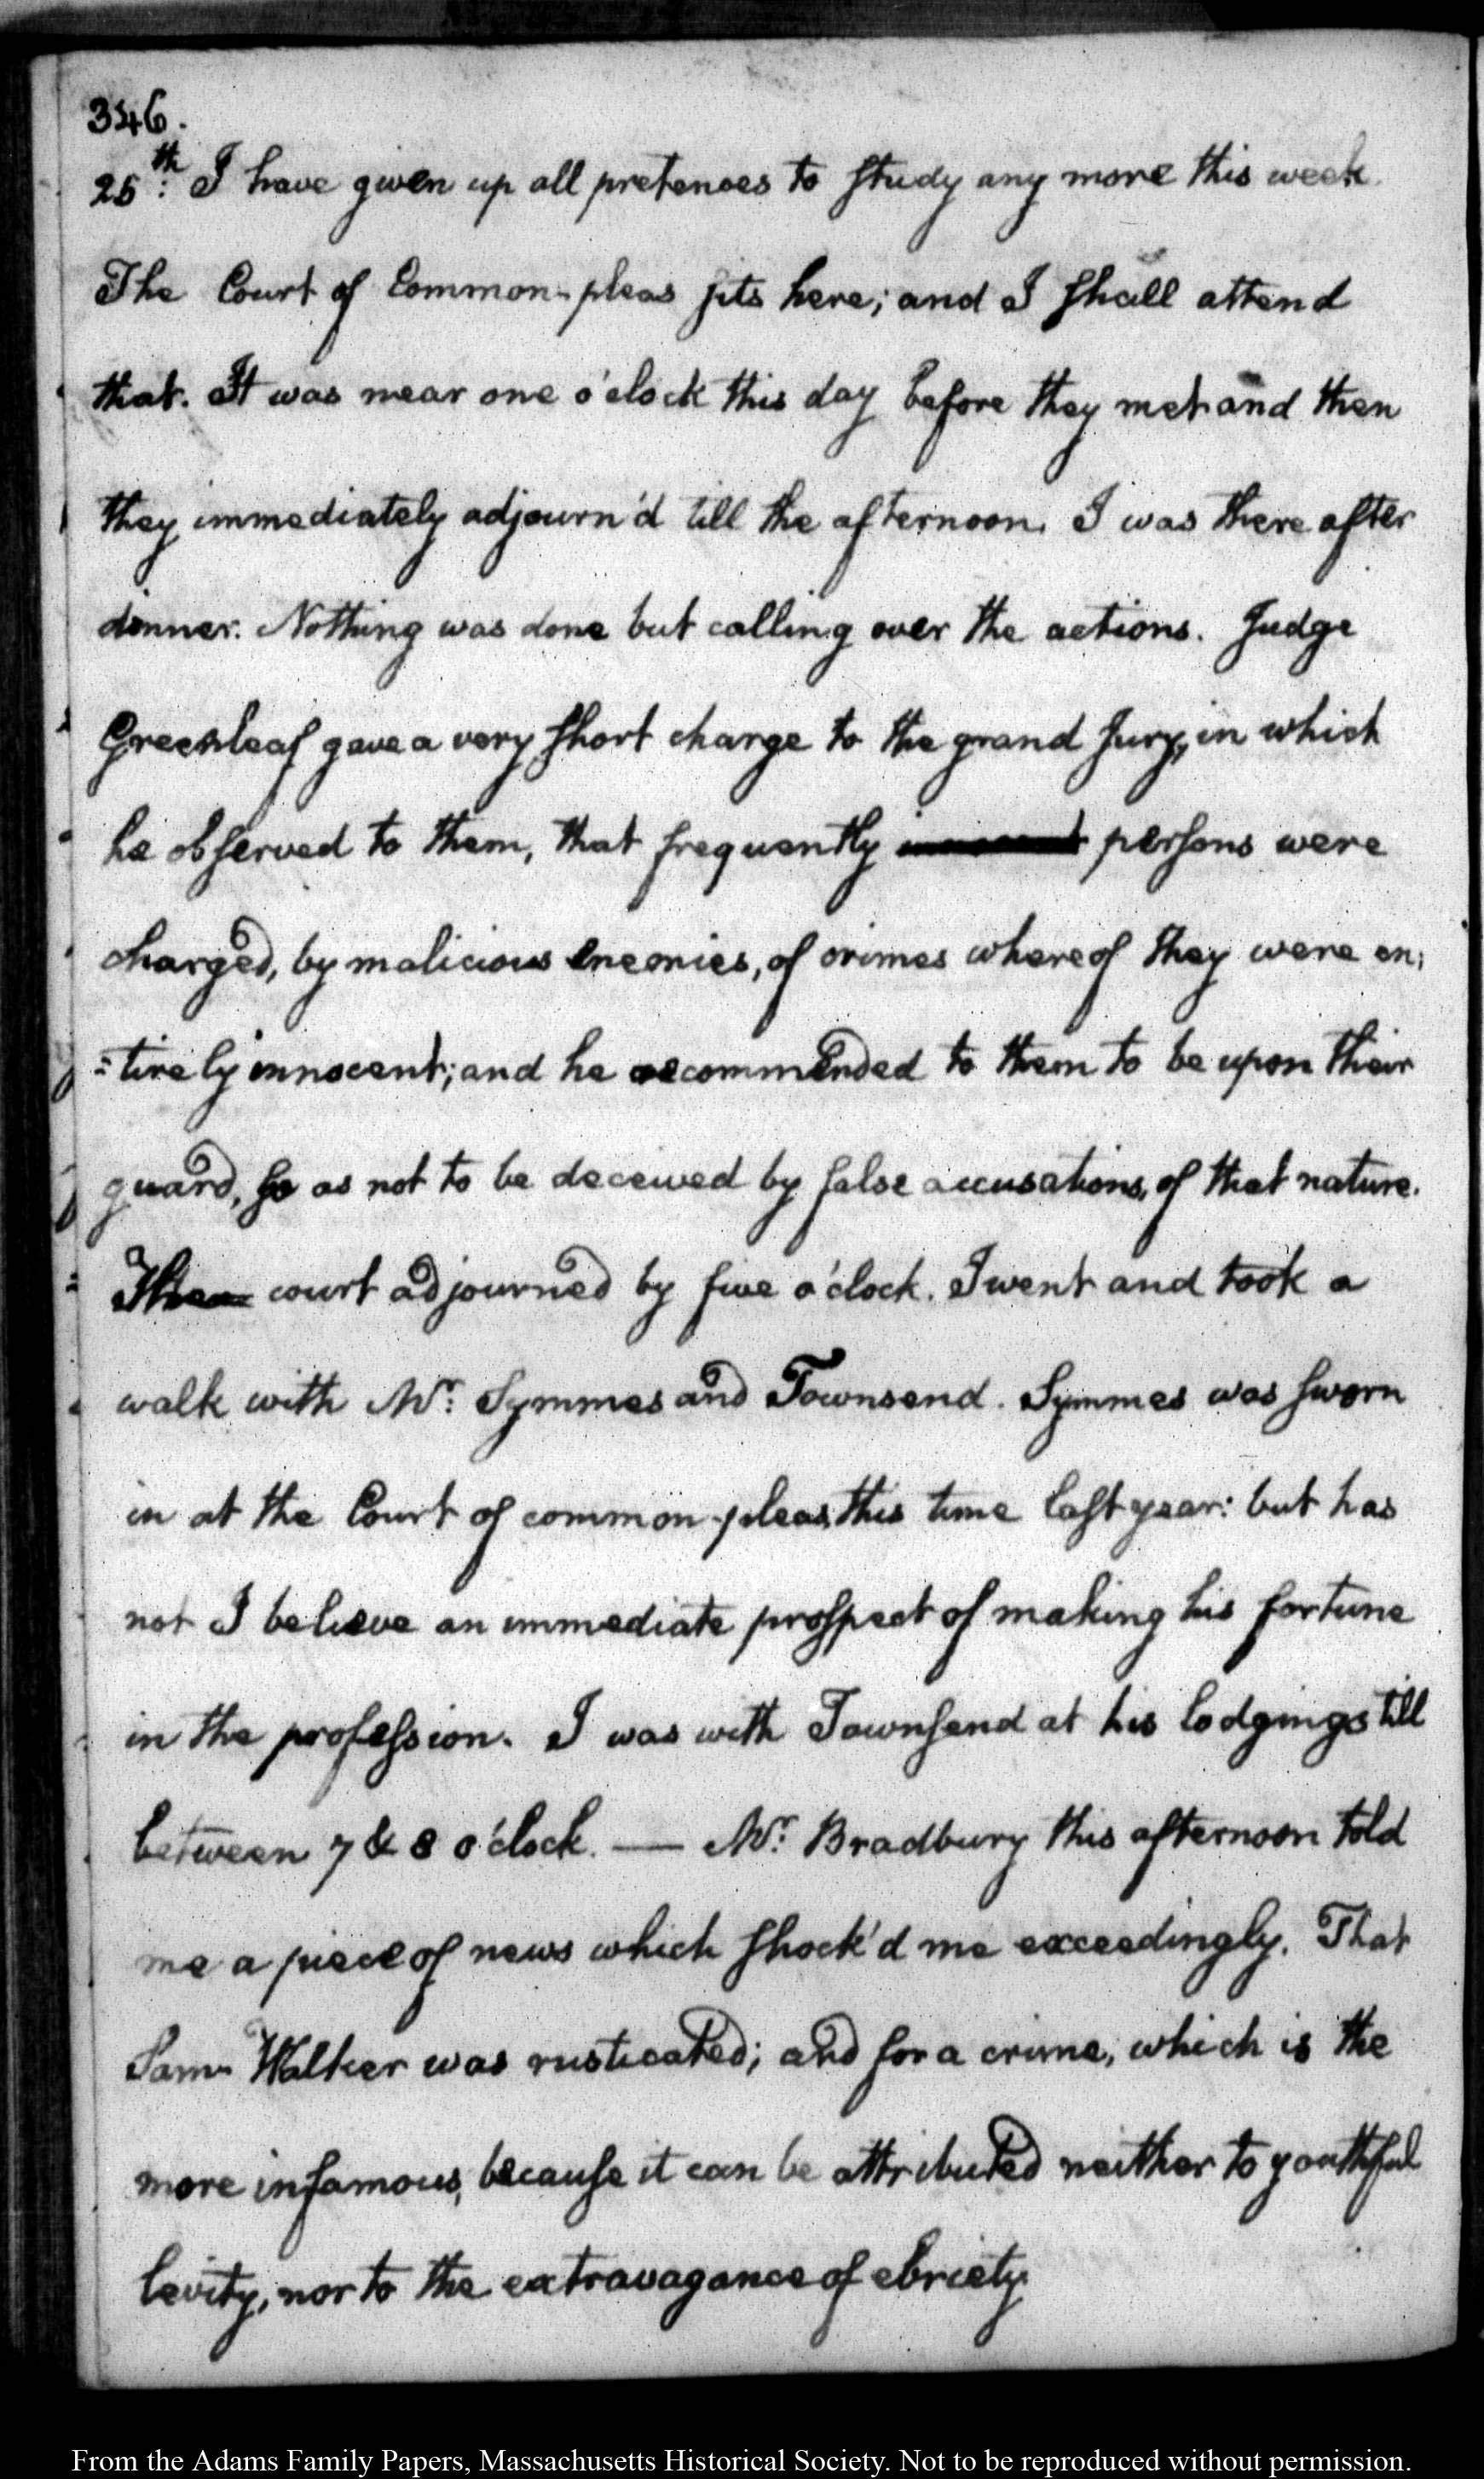 346.
25th: I have given up all pretences to study any more this week.
The Court of Common-pleas sits here; and I shall attend
that. It was near one o'clock this day before they met and then
they immediately adjourn'd till the afternoon. I was there after
dinner. Nothing was done but calling over the actions. Judge
Greenleaf gave a very short charge to the grand Jury, in which
he observed to them, that frequently persons were
charged, by malicious enemies, of crimes whereof they were en;
=tirely innocent; and he recommended to them to be upon their
guard, so as not to be deceived by false accusations, of that nature.
The court adjourned by five o'clock. I went and took a
walk with Mr: Symmes and Townsend. Symmes was sworn
in at the Court of common-pleas, this time last year: but has
not I believe an immediate prospect of making his fortune
in the profession. I was with Townsend at his lodgings till
between 7 & 8 o'clock. — Mr: Bradbury this afternoon told
me a piece of news which shock'd me exceedingly. That
Sam Walker was rusticated; and for a crime, which is the
more infamous, because it can be attributed neither to youthful
levity, nor to the extravagance of ebriety.
From the Adams Family Papers, Massachusetts Historical Society. Not to be reproduced without permission.